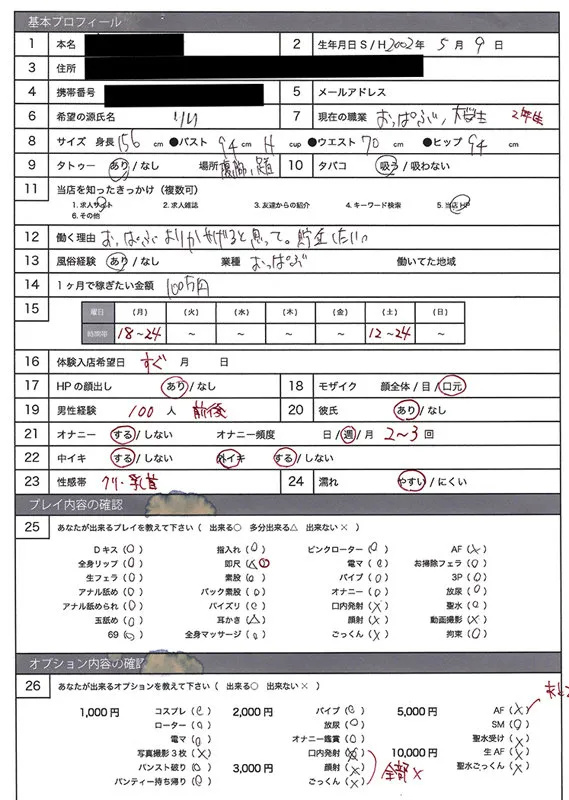 基本プロフィール
1 本名 2 生年月日 S / H 2002年 5月 9日
3 住所
4 携帯番号 5 メールアドレス
6 希望の源氏名 リリ 7 現在の職業 おっぱぶ、大学生 2年生
8 サイズ 身長 156 cm ●バスト 94 cm H cup ●ウエスト 70 cm ●ヒップ 94 cm
9 タトゥー あり / なし 場所 10 タバコ 吸う / 吸わない
11 当店を知ったきっかけ（複数可）
1. 求人サイト 2. 求人雑誌 3. 友達からの紹介 4. キーワード検索 5. 当店HP
6. その他
12 働く理由 おっぱぶよりかせげると思って。貯金したい
13 風俗経験 あり / なし 業種 おっぱぶ 働いてた地域
14 1ヶ月で稼ぎたい金額 100万円
15 曜日 （月） （火） （水） （木） （金） （土） （日）
時間帯 18~24 ～ ～ ～ ～ 12~24 ～
16 体験入店希望日 すぐ 月 日
17 HPの顔出し あり / なし 18 モザイク 顔全体 / 目 / 口元
19 男性経験 100 人 前後 20 彼氏 あり / なし
21 オナニー する / しない オナニー頻度 日 / 週 / 月 2~3 回
22 中イキ する / しない 外イキ する / しない
23 性感帯 クリ・乳首 24 濡れ やすい / にくい
プレイ内容の確認
25 あなたが出来るプレイを教えて下さい（ 出来る○ 多分出来る△ 出来ない× ）
Dキス（○） 指入れ（○） ピンクローター（○） AF（×）
全身リップ（○） 即尺（△○） 電マ（○） お掃除フェラ（○）
生フェラ（○） 素股（○） バイブ（○） 3P（○）
アナル舐め（○） バック素股（○） オナニー（○） 放尿（○）
アナル舐められ（○） パイズリ（○） 口内発射（×） 聖水（○）
玉舐め（○） 耳かき（△） 顔射（×） 動画撮影（×）
69（○） 全身マッサージ（○） ごっくん（×） 拘束（○）
オプション内容の確認
26 あなたが出来るオプションを教えて下さい（ 出来る○ 出来ない× ）
1,000円 コスプレ（○） 2,000円 バイブ（○） 5,000円 AF（×）
ローター（○） 放尿（○） SM（○）
電マ（○） オナニー鑑賞（○） 聖水受け（×）
写真撮影3枚（×） 口内発射（×） 10,000円 生AF（×）
パンスト破り（○） 3,000円 顔射（×） 全部× 聖水ごっくん（×）
パンティー持ち帰り（○） ごっくん（×）